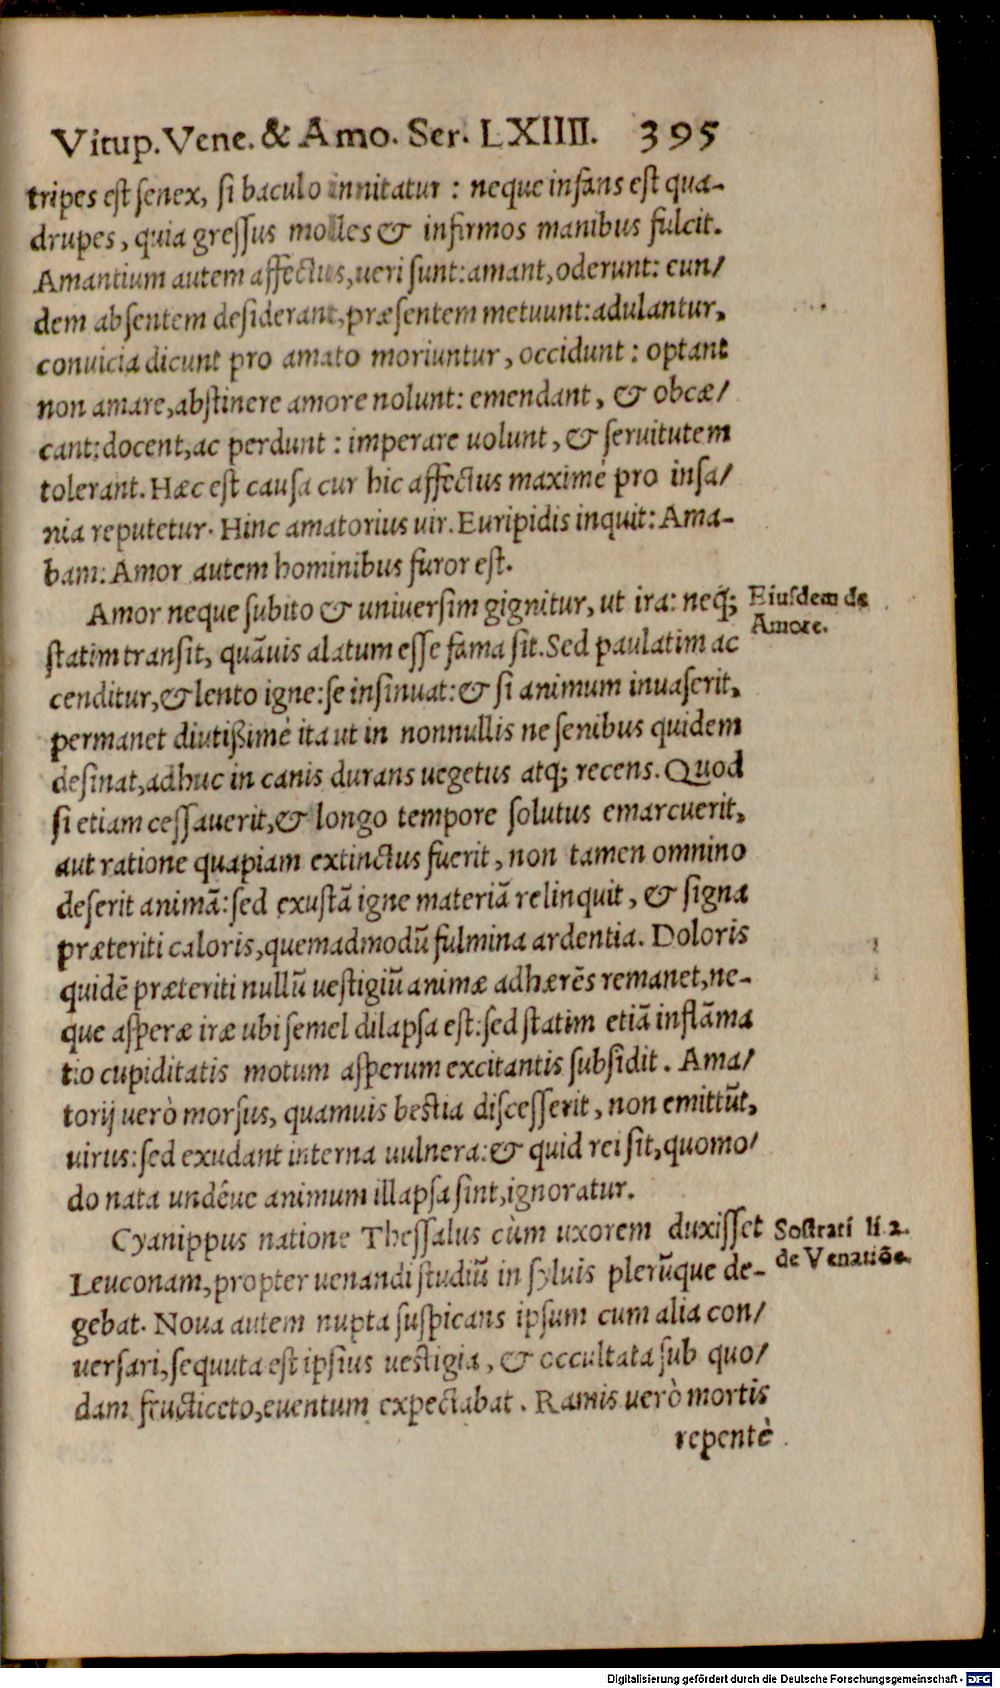 Vitup. Vene. & Amo. Ser. LXIIII. 395
tripes est senex, si baculo innitatur : neque infans est qua-
drupes, quia gressus molles & infirmos manibus fulcit.
Amantium autem affectus, ueri sunt: amant, oderunt: eun/
dem absentem desiderant, præsentem metuunt: adulantur,
conuicia dicunt pro amato moriuntur, occidunt : optant
non amare, abstinere amore nolunt: emendant, & obcæ/
cant: docent, ac perdunt : imperare uolunt, & seruitutem
tolerant. Hæc est causa cur hic affectus maximè pro insa/
nia reputetur. Hinc amatorius uir. Euripidis inquit: Ama-
bam: Amor autem hominibus furor est.
Amor neque subito & uniuersim gignitur, ut ira: neq;
Eiusdem de
Amore.
statim transit, quãuis alatum esse fama sit. Sed paulatim ac
cenditur, & lento igne: se insinuat: & si animum inuaserit,
permanet diutißimè ita ut in nonnullis ne senibus quidem
desinat, adhuc in canis durans uegetus atq; recens. Quod
si etiam cessauerit, & longo tempore solutus emarcuerit,
aut ratione quapiam extinctus fuerit, non tamen omnino
deserit animã: sed exustã igne materiã relinquit, & signa
præteriti caloris, quemadmodũ fulmina ardentia. Doloris
quidẽ præteriti nullũ uestigiũ animæ adhærẽs remanet, ne-
que asperæ iræ ubi semel dilapsa est: sed statim etiã inflãma
tio cupiditatis motum asperum excitantis subsidit. Ama/
torij uerò morsus, quamuis bestia discesserit, non emittũt,
uirus: sed exudant interna uulnera: & quid rei sit, quomo/
do nata undéue animum illapsa sint, ignoratur.
Cyanippus natione Thessalus cùm uxorem duxisset
Sostrati li. 2.
de Venatiõe.
Leuconam, propter uenandi studiũ in syluis plerũque de-
gebat. Noua autem nupta suspicans ipsum cum alia con/
uersari, sequuta est ipsius uestigia, & occultata sub quo/
dam fructiceto, euentum expectabat. Ramis uerò mortis
repentè
Digitalisierung gefördert durch die Deutsche Forschungsgemeinschaft - DFG